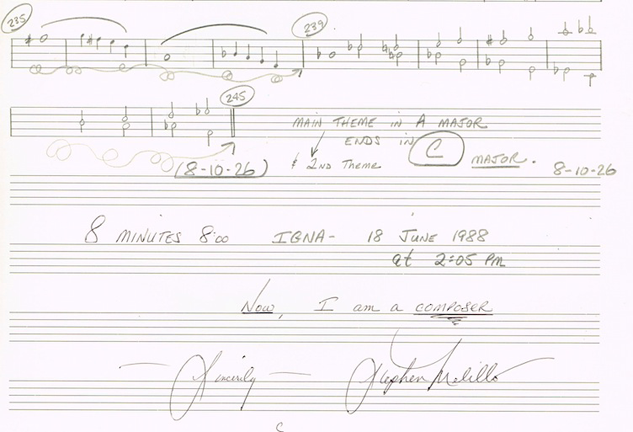 235 239
245 MAIN THEME IN A MAJOR
ENDS IN C MAJOR.
(8-10-26) & 2ND THEME 8-10-26
8 MINUTES 8:00 IGNA- 18 JUNE 1988
at 2:05 PM
Now, I am a COMPOSER
— Sincerely —
Stephen Melillo
C